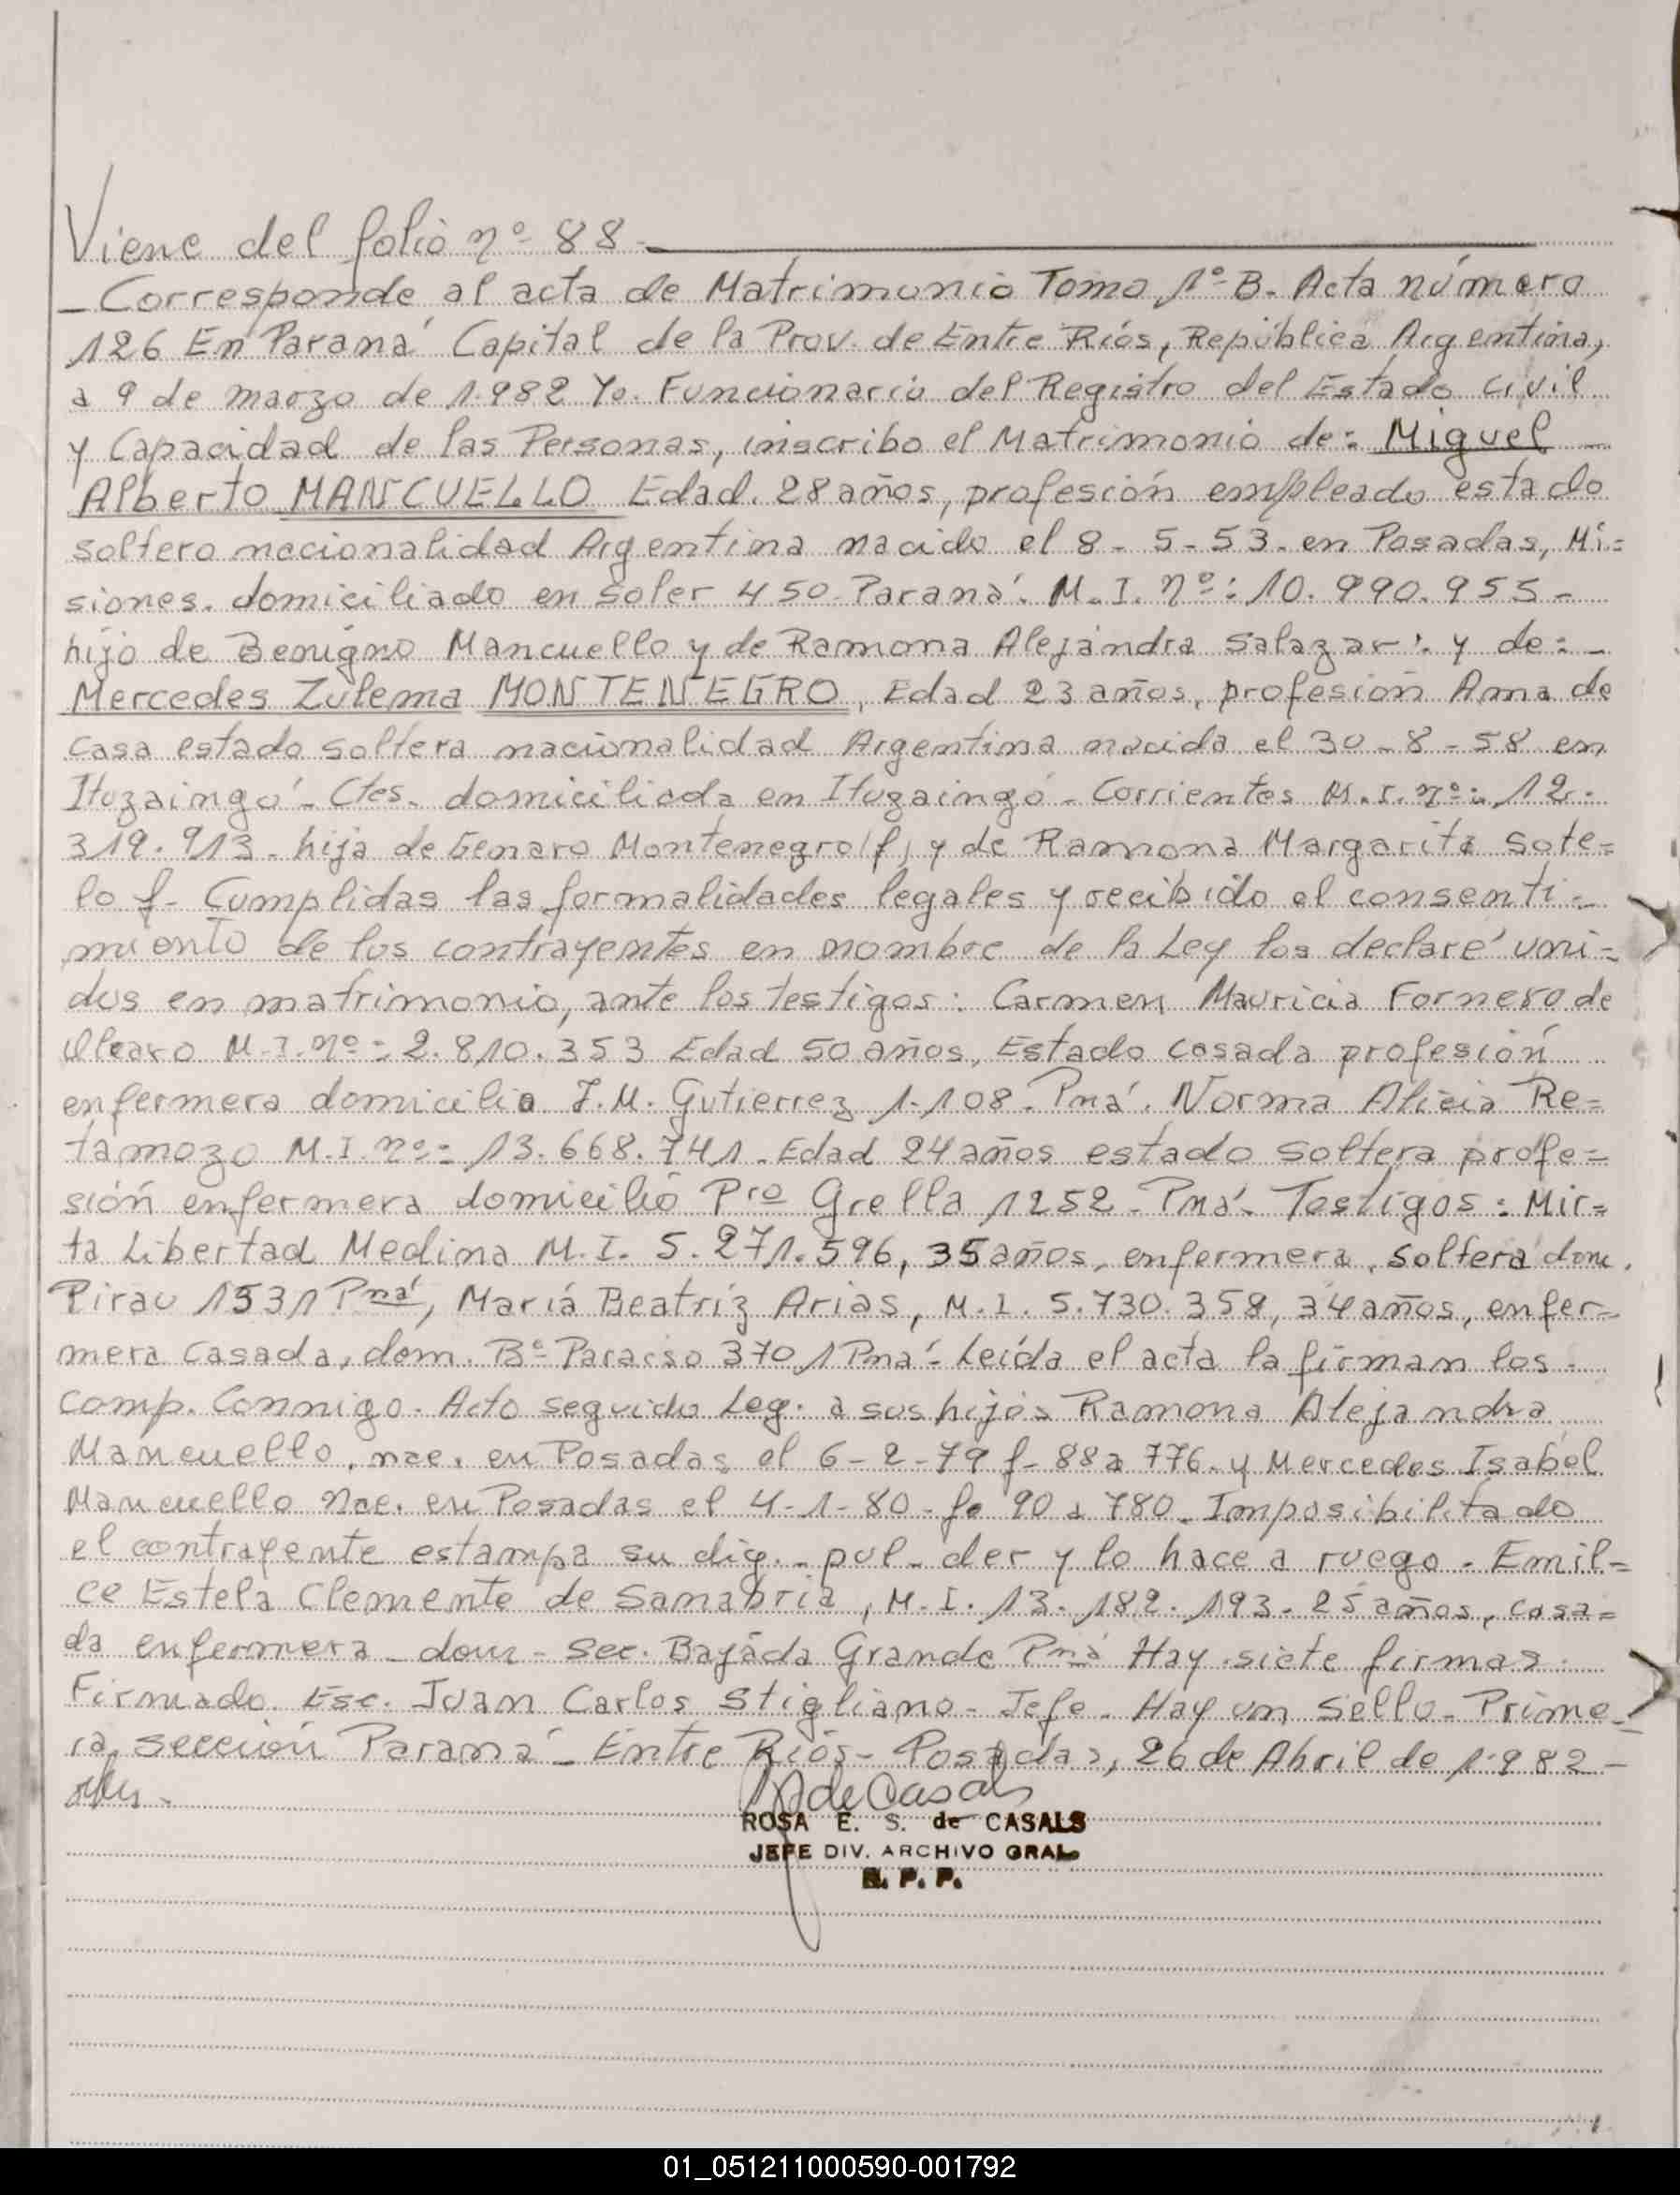 Viene del folio nº 88
- Corresponde al acta de Matrimonio Tomo 1º B. Acta número
126 En Paraná Capital de la Prov. de Entre Ríos, República Argentina,
a 9 de marzo de 1.982 Yo. Funcionario del Registro del Estado Civil
y Capacidad de las Personas, inscribo el Matrimonio de: Miguel -
Alberto MANCUELLO Edad. 28 años, profesión empleado estado
soltero nacionalidad Argentina nacido el 8 - 5 - 53. en Posadas, Mi=
siones. domiciliado en Soler 450. Paraná. M. I. nº: 10. 990. 955 -
hijo de Benigno Mancuello y de Ramona Alejandra Salazar. y de: -
Mercedes Zulema MONTENEGRO, Edad 23 años, profesión Ama de
Casa estado soltera nacionalidad Argentina nacida el 30 - 8 - 58 en
Ituzaingó - Ctes. domiciliada en Ituzaingó - Corrientes M. I. nº: 12.
319. 913 - hija de Genaro Montenegro (f) y de Ramona Margarita Sote=
lo f - Cumplidas las formalidades legales y recibido el consenti -
miento de los contrayentes en nombre de la Ley los declaré uni =
dos en matrimonio, ante los testigos: Carmen Mauricia Fornero de
M. I. nº: 2. 810. 353 Edad 50 años, Estado casada profesión
enfermera domicilio J. M. Gutierrez 1.108. Pná. Norma Alicia Re=
tamozo M. I. nº: 13. 668. 741. Edad 24 años estado soltera profe=
sión enfermera domicilio Pro Grella 1252 - Pná. Testigos: Mir=
ta Libertad Medina M. I. 5. 271. 596, 35 años, enfermera, soltera dom.
Pirau 1531 Pná, María Beatríz Arias, M. I. 5. 730. 358, 34 años, enfer=
mera Casada, dom. Bº Paraiso 370 1 Pná - Leída el acta la firman los -
Comp. Conmigo. Acto seguido Leg. a sus hijos Ramona Alejandra
Mancuello, nac. en Posadas el 6 - 2 - 79 f - 88 a 776. y Mercedes Isabel
Mancuello nac. en Posadas el 4 - 1 - 80 - fº 90 a 780 - Imposibilitado
el contrayente estampa su dig. - pul - der y lo hace a ruego - Emil=
ce Estela Clemente de Sanabria, M. I. 13. 182. 193 - 25 años, casa=
da enfermera - dom - Sec. Bajada Grande Pná Hay siete firmas.
Firmado. Esc. Juan Carlos Stigliano - Jefe. Hay un Sello - Prime=
ra, sección Paraná - Entre Ríos - Posadas, 26 de Abril de 1.982 -
de Casals
ROSA E. S. de CASALS
JEFE DIV. ARCHIVO GRAL
R. P. P.
01_051211000590-001792